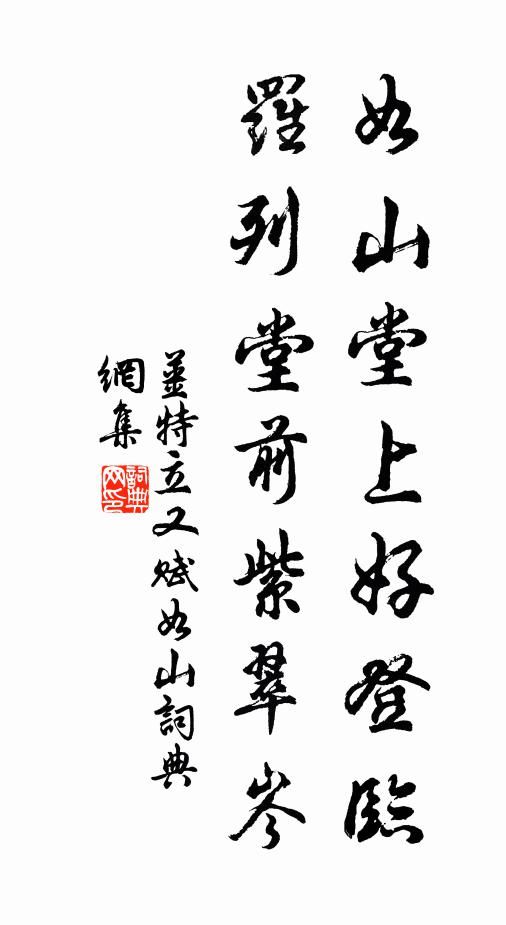 如山堂上好登臨
羅列堂前紫翠岑
姜特立又賦如山詞典
網集
詞典網印